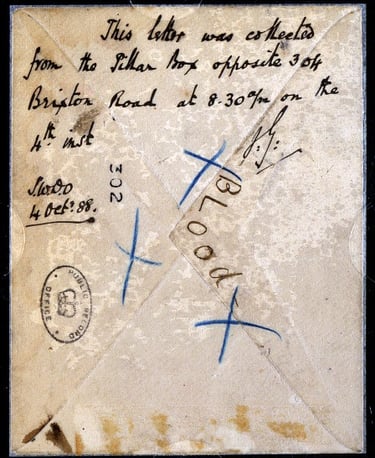 This letter was collected
from the Pillar Box opposite 304
Brixton Road at 8.30 a/m on the
4th inst
J.G.
S.W.D.O
4 Octr 88.
302
BLOOd
PUBLIC RECORD
OFFICE